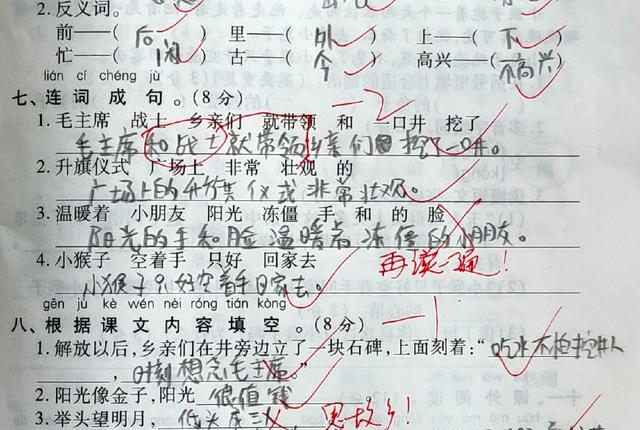 2.反义词。
前——(后) 里——(外) 上——(下)
忙——(闲) 古——(今) 高兴——(不高兴)
lián cí chéng jù
七、连词成句。(8分) -2
1.毛主席 战士 乡亲们 就带领 和 一口井 挖了
毛主席和战士就带领乡亲们挖了一口井。
2.升旗仪式 广场上 非常 壮观 的
广场上的升旗仪式非常壮观。
3.温暖着 小朋友 阳光 冻僵 手 和 的 脸
阳光的手和脸温暖着冻僵的小朋友。
4.小猴子 空着手 只好 回家去 再读一遍!
小猴子只好空着手回家去。
gēn jù kè wén nèi róng tián kòng
八、根据课文内容填空。(8分) -1
1.解放以后,乡亲们在井旁边立了一块石碑,上面刻着:“吃水不忘挖井人
,时刻想念毛主席。”
2.阳光像金子,阳光 很值钱
3.举头望明月, 低头 思故乡!